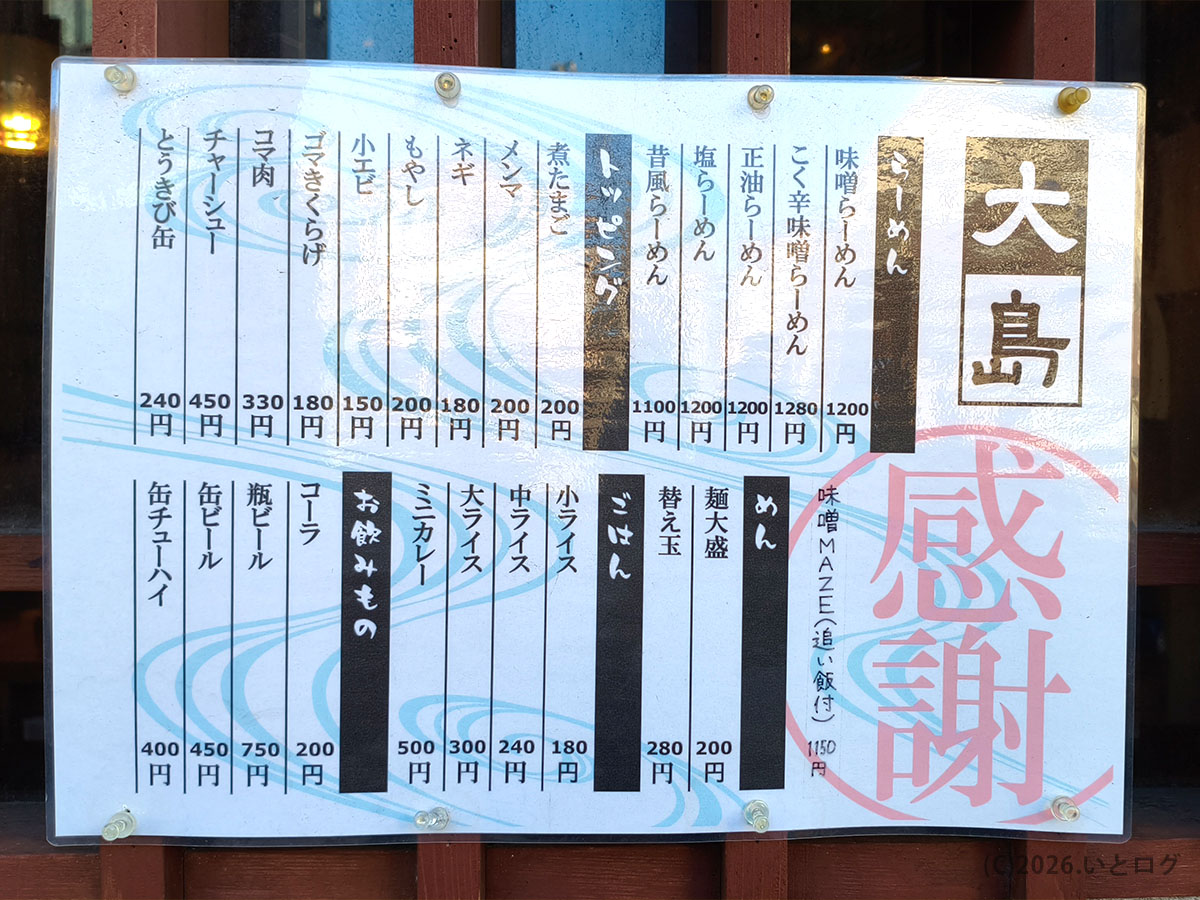 大島
感謝
らーめん
味噌らーめん 1200円
こく辛味噌らーめん 1280円
正油らーめん 1200円
塩らーめん 1200円
昔風らーめん 1100円
トッピング
煮たまご 200円
メンマ 200円
ネギ 180円
もやし 200円
小エビ 150円
ゴマきくらげ 180円
コマ肉 330円
チャーシュー 450円
とうきび缶 240円
味噌MAZE(追い飯付) 1150円
めん
麺大盛 200円
替え玉 280円
ごはん
小ライス 180円
中ライス 240円
大ライス 300円
ミニカレー 500円
お飲みもの
コーラ 200円
瓶ビール 750円
缶ビール 450円
缶チューハイ 400円
(C)2026.いとログ